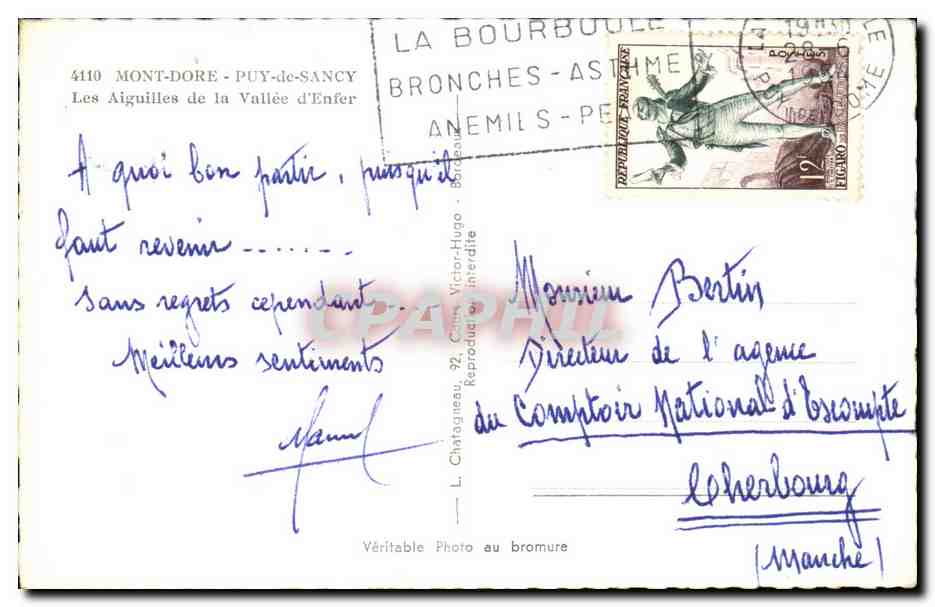 4110 MONT-DORE - PUY-de-SANCY
Les Aiguilles de la Vallée d'Enfer
LA BOURBOULE
BRONCHES - ASTHME
ANEMIES - PE
POSTES
REPUBLIQUE FRANÇAISE
12F
FIGARO
A quoi bon partir, puisqu'il
faut revenir -.......
sans regrets cependant...
Meilleurs sentiments
L. Chatagneau, 92, Cours Victor-Hugo - Bordeaux
Reproduction interdite
CPAPHIL
Monsieur Bertin
Directeur de l'agence
du Comptoir National d'Escompte
Cherbourg
(Manche)
Véritable Photo au bromure